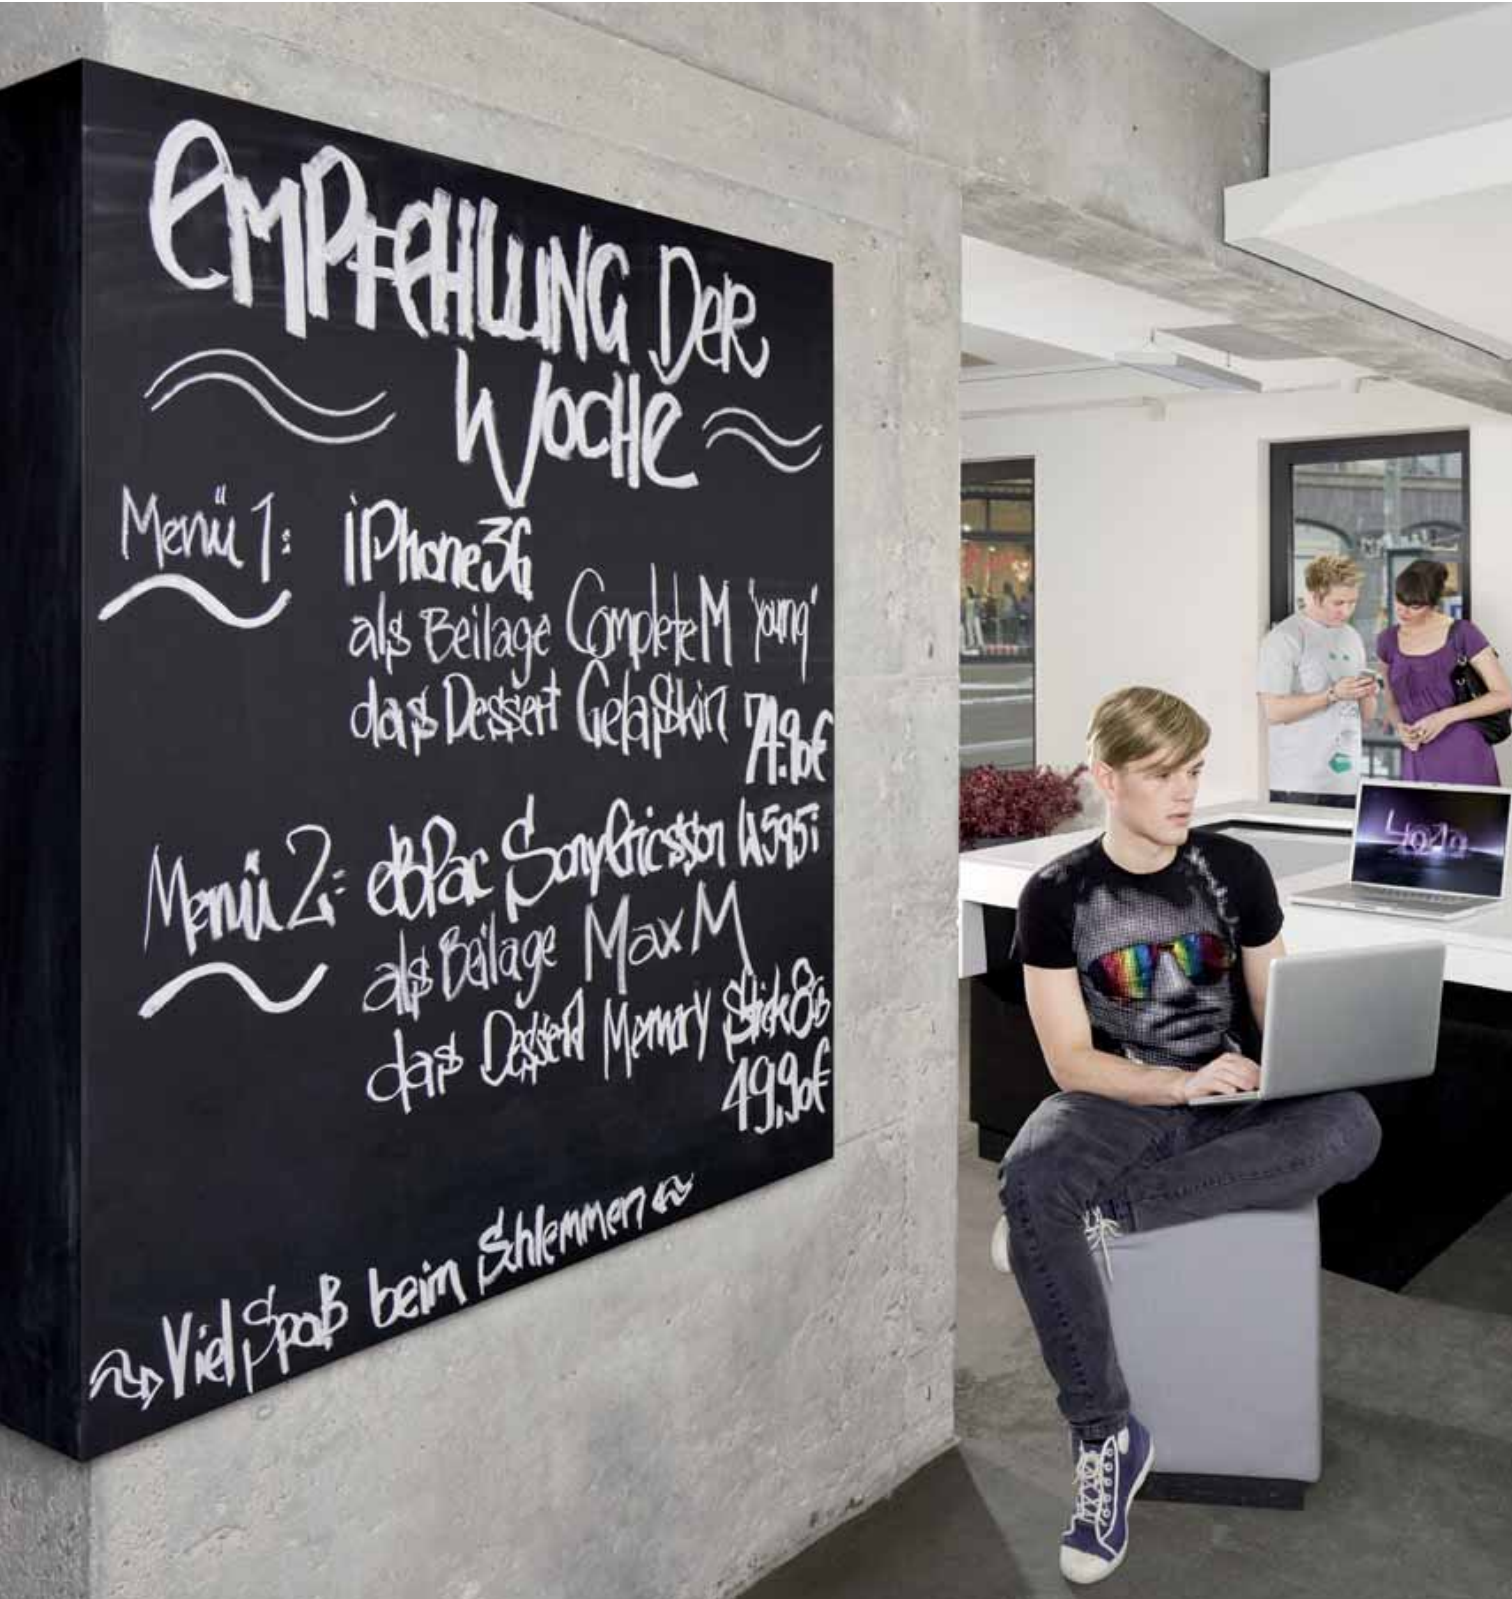 EMPFEHLUNG DER
WOCHE
Menü 1: iPhone3G
als Beilage Complete M "young"
das Dessert GelaSkin
74.90€
Menü 2: eBPac SonyEricsson W595i
als Beilage Max M
das Dessert Memory Stick 8GB
49,90€
Viel Spaß beim Schlemmen
4010